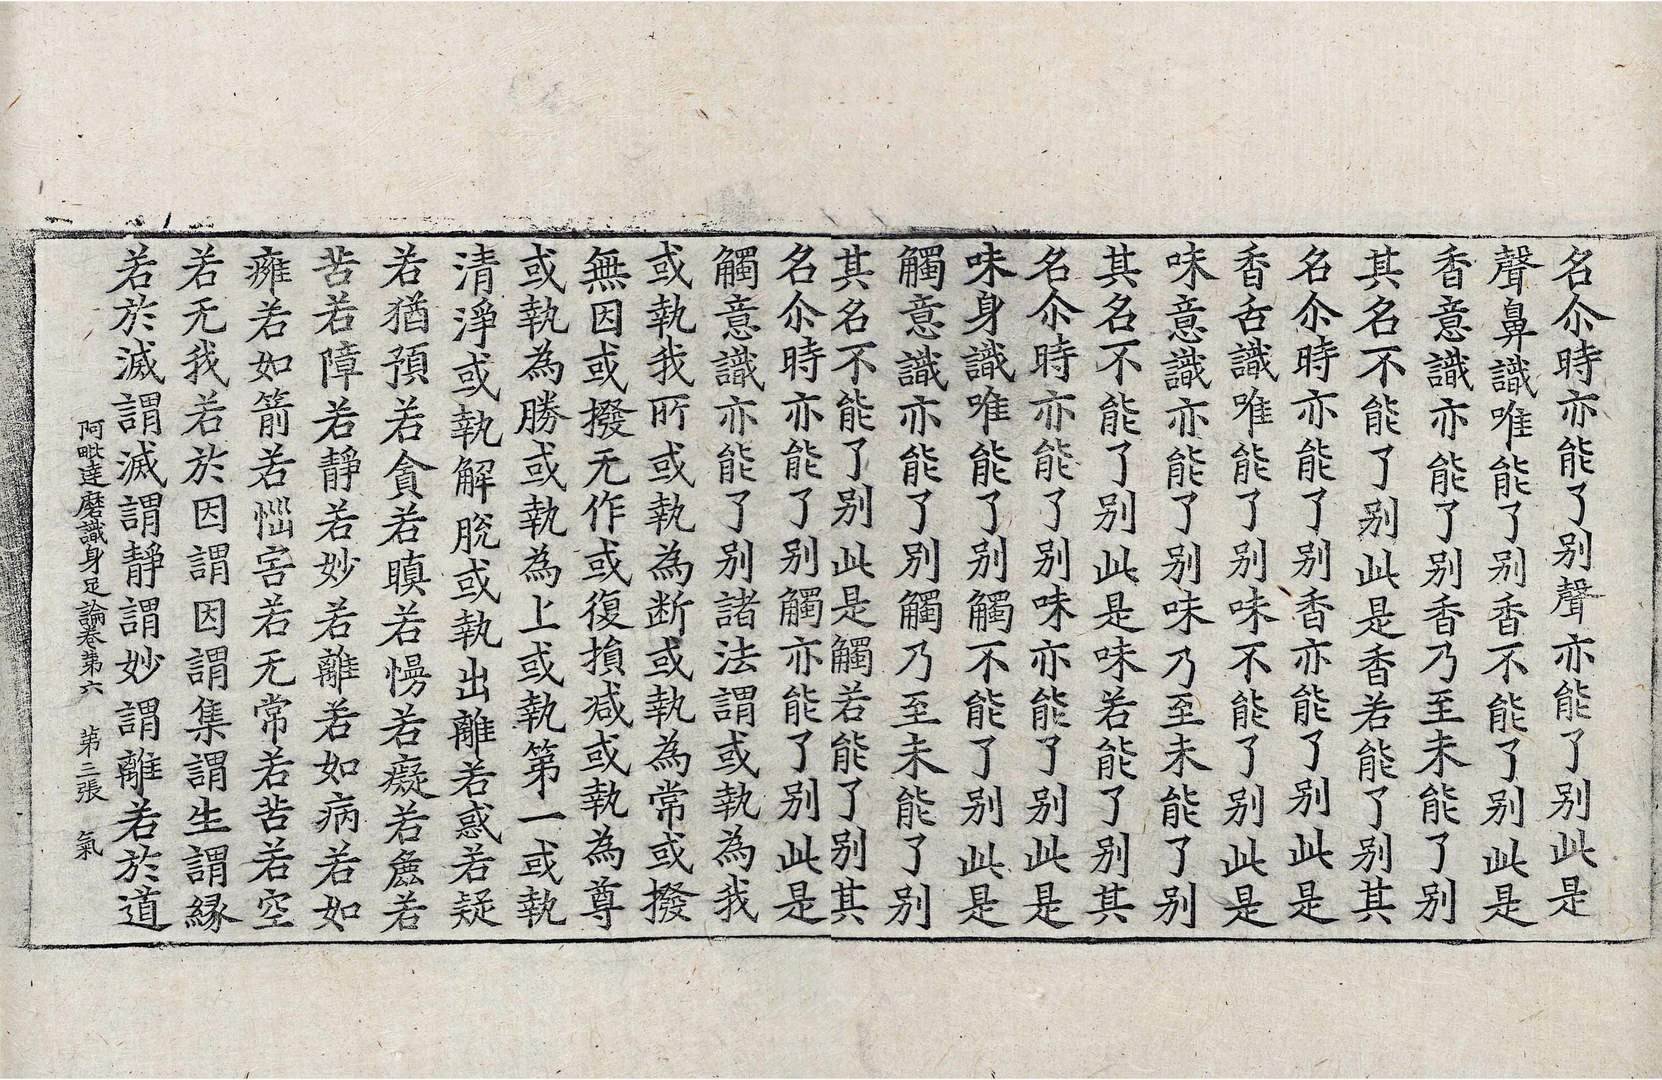 名尒時亦能了别聲亦能了别此是
聲鼻識唯能了别香不能了别此是
香意識亦能了别香乃至未能了别
其名不能了别此是香若能了别其
名尒時亦能了别香亦能了别此是
香舌識唯能了别味不能了别此是
味意識亦能了别味乃至未能了别
其名不能了别此是味若能了别其
名尒時亦能了别味亦能了别此是
味身識唯能了别觸不能了别此是
觸意識亦能了别觸乃至未能了别
其名不能了别此是觸若能了别其
名尒時亦能了别觸亦能了别此是
觸意識亦能了别諸法謂或執為我
或執我所或執為断或執為常或撥
無因或撥无作或復損减或執為尊
或執為勝或執為上或執第一或執
清淨或執解脫或執出離若惑若疑
若猶預若貪若瞋若慢若癡若麁若
苦若障若靜若妙若離若如病若如
癰若如箭若惱害若无常若苦若空
若无我若於因謂因謂集謂生謂緣
若於滅謂滅謂靜謂妙謂離若於道
阿毗達磨識身足論卷第六 第三張 氣